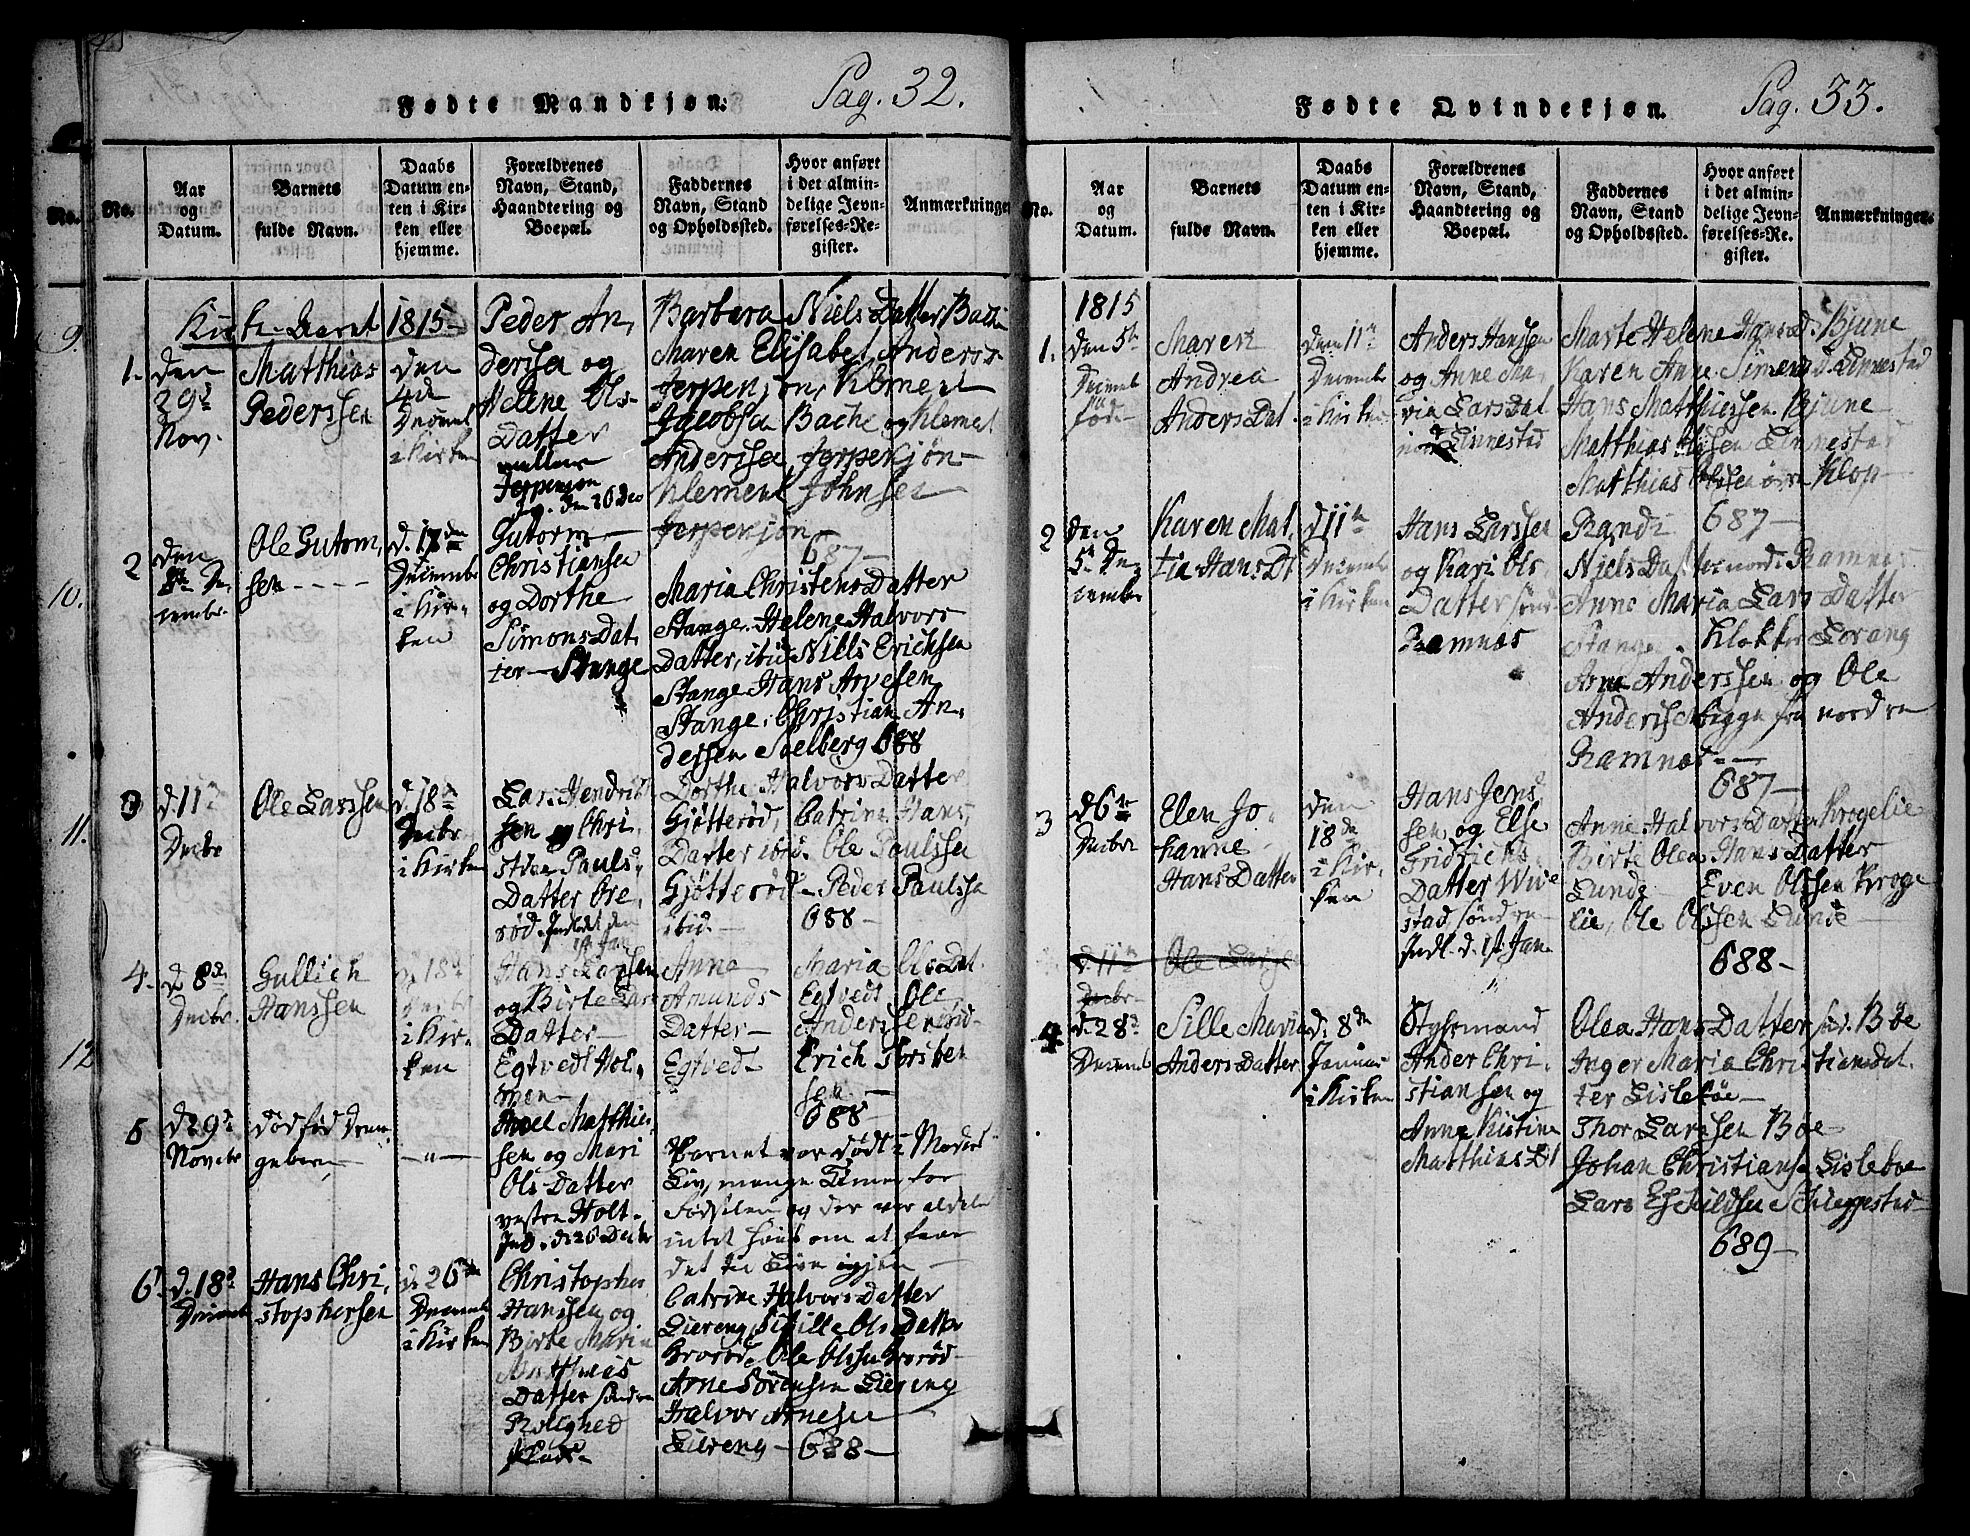 Fødte Mandkjøn. Pag. 32.
No.
Aar
og
Datum.
Barnets
fulde Navn.
Daabs
Datum en-
ten i Kir-
ken eller
hjemme.
Forældrenes
Navn, Stand,
Haandtering og
Boepæl.
Faddernes
Navn, Stand
og Opholdssted.
Hvor anført
i det almin-
delige Jevn-
førelses-Re-
gister.
Anmærkninger
Kirke Aaret 1815
1.
den
29d
Nov.
Matthias
Pederssen
den
4de
Decembr
i Kirken
Peder An,
derssen og
Helene Ols-
Datter
mellem
Jerpenjon
den 26 Dec
Barbara Niels Datter Bache
Maren Elisabet Anders-
Jerpenjon, Klement
Jacobsen Bache og Klemet
Anderssen Jerpekjøn-
Klement Johnsen
Jerpekjøn-
687-
2
den
8de De
cembr.
Ole Gutorm,
sen - - - -
d. 17de
Decembr
i Kir-
ken
Gutorm-
Christiansen
og Dorthe
Simons Dat
ter- Stange
Maria Christens Datter
Stange. Helene Halvors
Datter, ibid Niels Erichsen
Stange Hans Arvesen
Stange, Christian An,
derssen Solberg 688
3
d. 11te
Decbr
Ole Larssen
d. 18de
Decbr.
i Kirken
Lars Hendrik
sen og Chri
stine Pauls,
Datter Øre,
rød. Indledt den
1st Jan
Dorthe Halvors Datter
Gjøtterød, Catrine Hans,
Datter ibid. Ole Paulssen
Gjøtterød- Peder Paulssen
ibid.- 688-
4.
d 8de
Decbr.
Gullich
Hanssen
d. 18d
Decbr
i Kir-
ken
Hans Larssen
og Birte Lars
Datter-
Egtvedt Hol,
men-
Anne Maria Ols Dat.
Amunds Egtvedt Ole
Datter- Anderssen ibid-
Egtved- Erich Torsten
sen-
688
5
d 29d
Novebr
dødfød Dren-
gebarn-
-"-
Poul Matthies,
sen og Mari
Ols Datter
vestre Holt-
Ind. d 26 Decbr
Barnet var dødt i Moders
Liv, mange Timer for
Fødselen og der var aldeles
intet Haab om at faae
det til Live igjen-
6.
d. 18d
Decembr
Hans Chri,
stophersen
d. 26de
Decembr
i Kirken
Christopher
Hanssen og
Birte Maria
Matthias
Datter søndre
Rolighed
Catrine Halvors Datter
Liereng, Sisille Ols Datter
Brorød, Ole Olssen Brorød-
Arne Sørensen Liereng
Halvor Arnesen
Liereng- 688-
9.
10.
11.
12
No.
Fødte Qvindekjøn. Pag. 33.
No.
Aar
og
Datum.
Barnets
fulde Navn.
Daabs
Datum en-
ten i Kir-
ken eller
hjemme.
Forældrenes
Navn, Stand,
Haandtering og
Boepæl.
Faddernes
Navn, Stand
og Opholdssted.
Hvor anført
i det almin-
delige Jevn-
førelses-Re-
gister.
Anmærkninger.
1815
1.
den 5te
Decemb
fød-
Maren
Andrea
Anders Dat
den 11te
Decembr
i Kirken
Anders Hanssen
og Anne Ma,
ria Lars Dat
Linnestad
Marte Helene Hans d. Bjune
Karen Anne Simens d. Linnestad
Hans Matthiessen Bjune
Matthias Linnestad
Matthias Olssen Klop-
687-
2
den
5te De,
cembr
Karen Mat,
tia Hans Dt
d 11te
Decembr
i Kirken
Hans Larssen
og Kari Ols,
Datter sønd
Ramnæs
Randi
Niels Datter nord. Ramnes
Anne Maria Lars Datter
Stange. Klokker Lorang
Arne Anderssen og Ole
Anderssen begge fra nordre
Ramnæs-
687-
3
d 6te
Decbr
Elen Jo-
hanne
Hans Datter
den
18de
i Kir-
ken
Hans Jens
sen og Else
Fridrichs
Datter Wive
stad, søndre
Indl. d. 1st Jan.
Anne Halvors Datter Krogelie
Birte Olea Hans Datter
Lunde Even Olssen Kroge
lie, Ole Olssen Lunde
688-
d. 11te
Decbr-
Ole Larss
4
d. 28d
Decemb
Sille Maria
Anders Datter
d. 8de
Januar
i Kirken
Stythmand
Ander Chri-
stiansen og
Anne Kistine
Matthias Dt
Olea Hans Datter Bøe
Inger Maria Christiansdat.
ter Lisleböe-
Thor Larssen Bøe
Johan Christiansen Lisleboe
Lars Eskildsen Skieggestad
689-